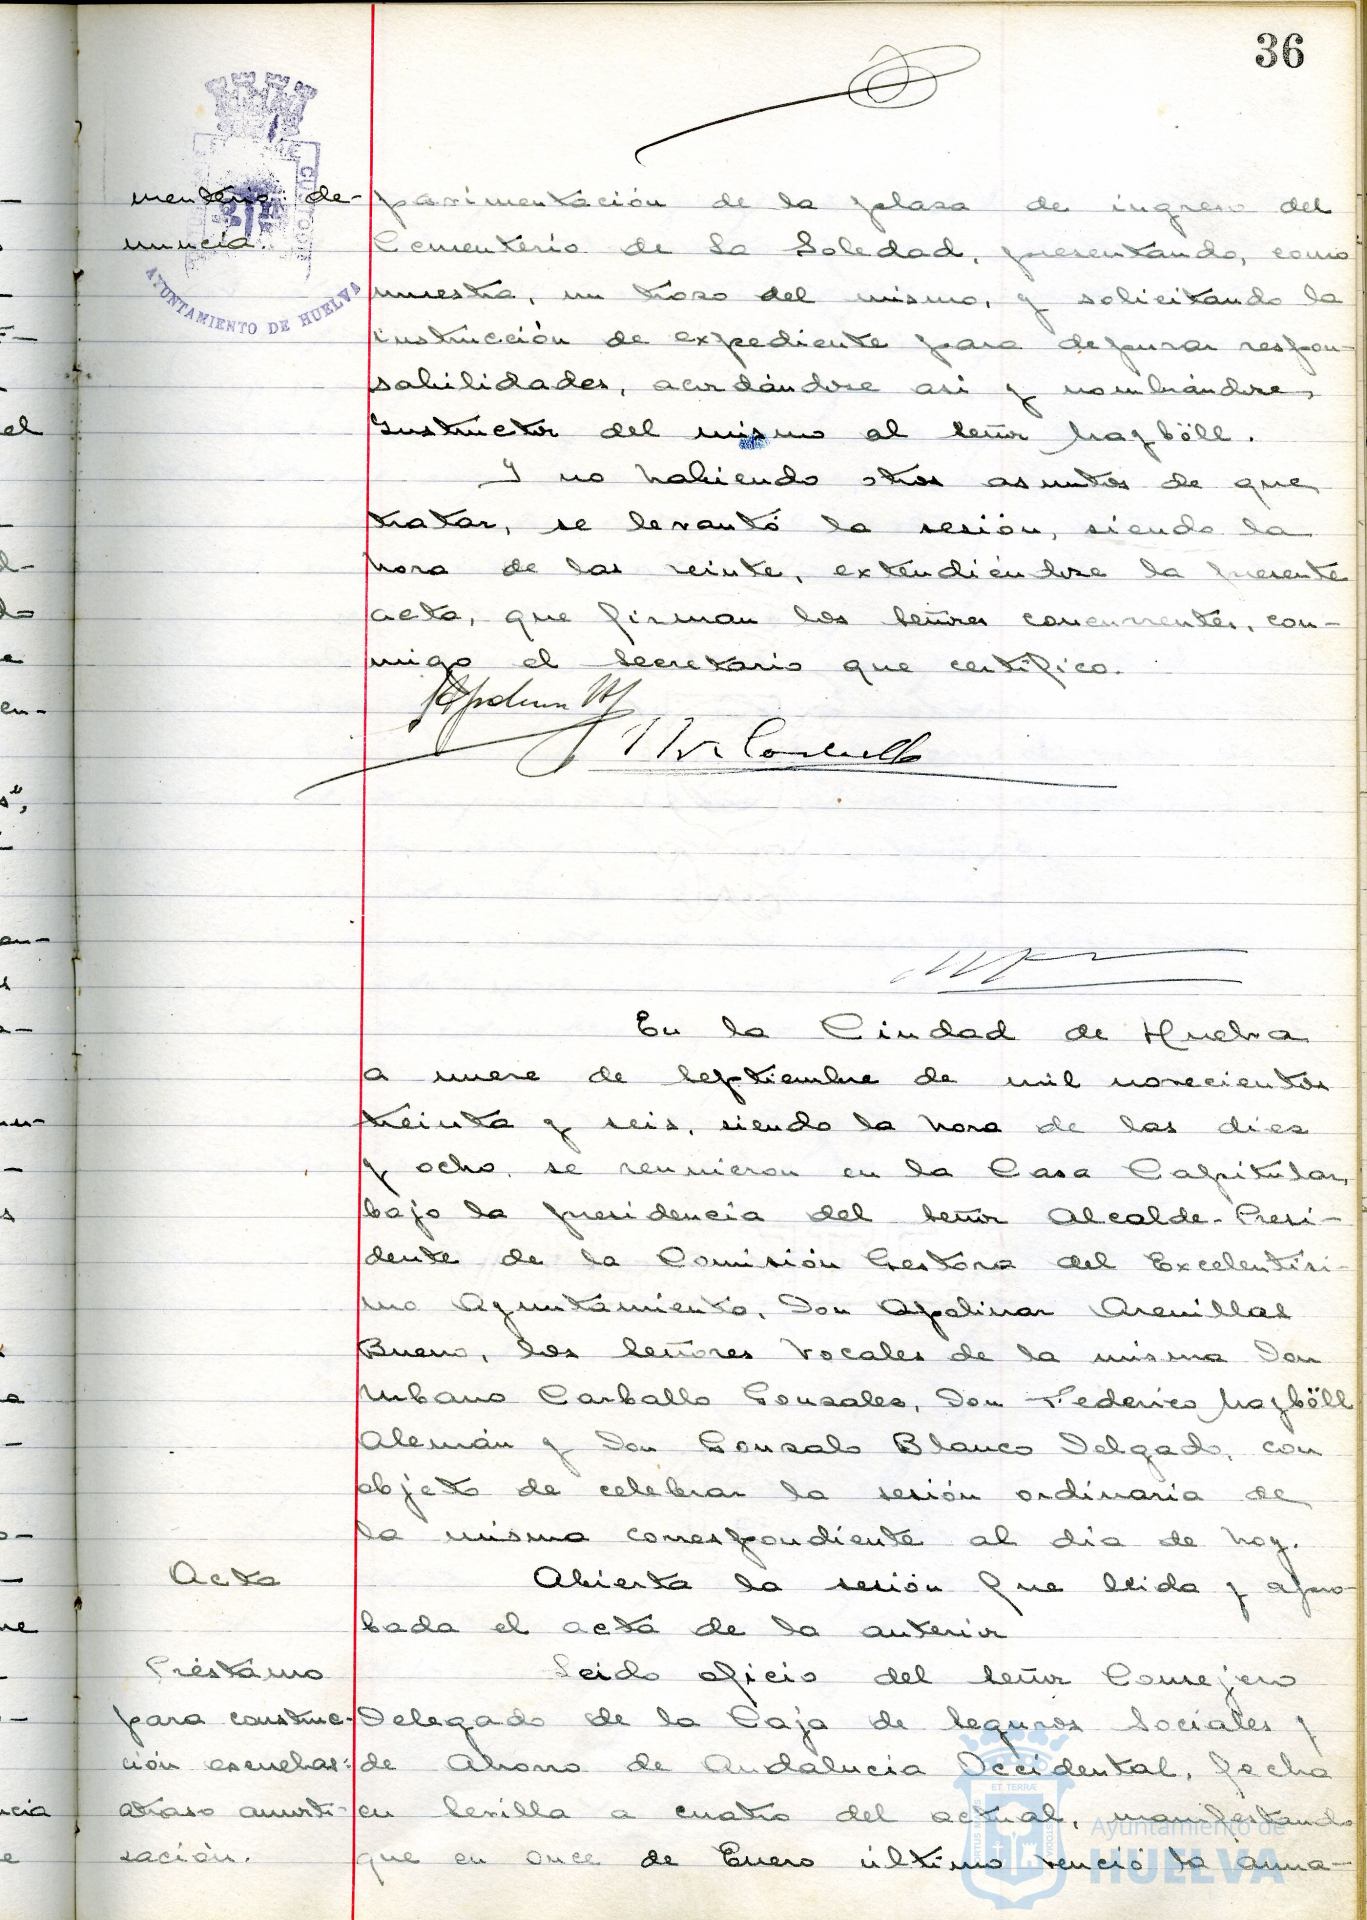 36
menterio: de-
nuncia.
AYUNTAMIENTO DE HUELVA
pavimentación de la plaza de ingreso del
Cementerio de La Soledad, presentando, como
muestra, un trozo del mismo, y solicitando la
instrucción de expediente para depurar respon-
sabilidades, acordándose asi y nombrándose,
Instructor del mismo al Señor Mayböll.
Y no habiendo otros asuntos de que
tratar, se levantó la sesión, siendo la
hora de las veinte, extendiéndose la presente
acta, que firman los Señores concurrentes, con-
migo el Secretario que certifico.
En la Ciudad de Huelva
a nueve de Septiembre de mil novecientos
treinta y seis, siendo la hora de las diez
y ocho, se reunieron en la Casa Capitular,
bajo la presidencia del Señor Alcalde-Presi-
dente de la Comisión Gestora del Excelentísi-
mo Ayuntamiento, Don Apolinar Arenillas
Bueno, los Señores Vocales de la misma Don
Urbano Carballo Gonzales, Don Federico Mayböll
Alemán y Don Gonzalo Blanco Delgado, con
objeto de celebrar la sesión ordinaria de
la misma correspondiente al dia de hoy.
Acta
Abierta la sesión fue leida y apro-
bada el acta de la anterior
Préstamo
para construc-
ción escuelas:
atraso amorti-
zación.
Leido oficio del Señor Consejero
Delegado de la Caja de Seguros Sociales y
de Ahorro de Andalucia Occidental, fecha
en Sevilla a cuatro del actual, manifestando
que en once de Enero último venció la anua-
Ayuntamiento de
HUELVA